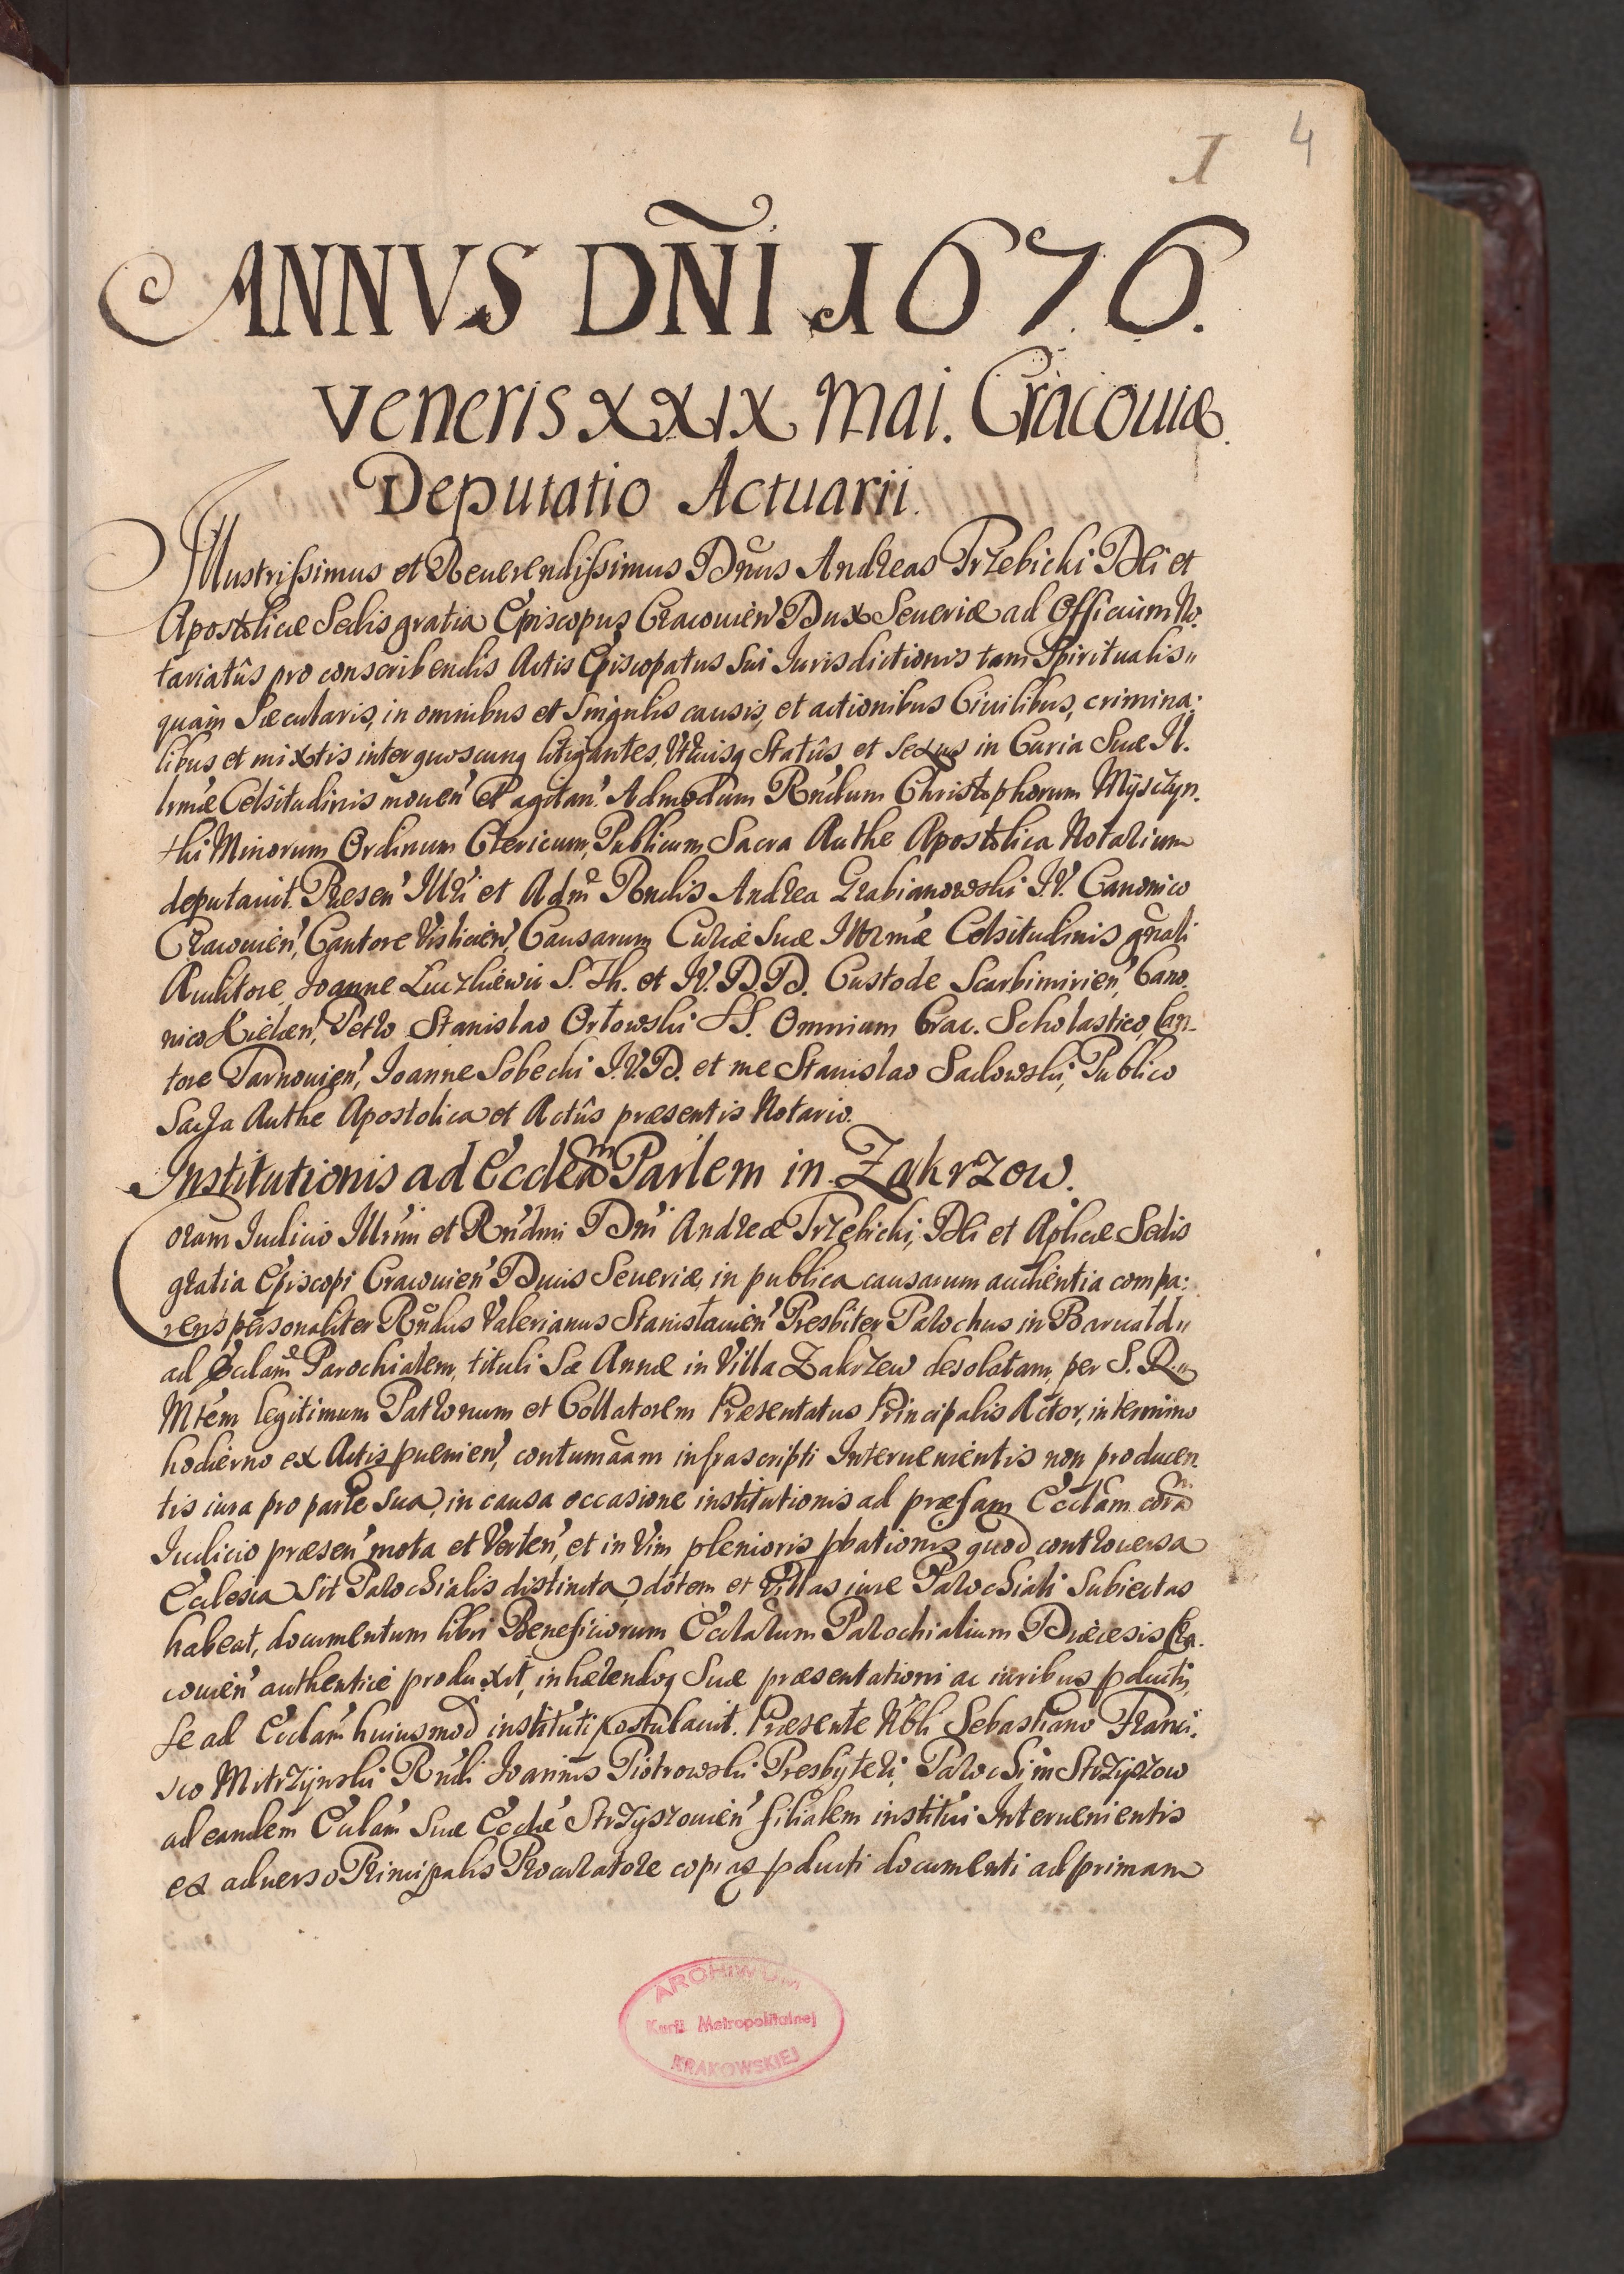 1 4
ANNVS DÑI 1676.
Veneris XXIX Mai. Cracouiæ.
Deputatio Actuarii.
Illustrissimus et Reuerendissimus Dñus Andreas Trzebicki Dei et
Apostolicæ Sedis gratia Episcopus Cracouien̕ Dux Seueriæ ad Officium No-
tariatûs pro conscribendis Actis Episcopatus Sui Iurisdictionis tam Spiritualis
quam Sæcularis, in omnibus et Singulis causis, et actionibus Ciuilibus, crimina:
libus et mixtis inter quoscunq litigantes, Vtriusq Statûs et Sexus in Curia Suæ Il-
lrmæ Celsitudinis mouen̕ et agitan̕. Admodum Rñdum Christophorum Mÿsczyn-
ski Minorum Ordinum Clericum, Publicum Sacra Authe Apostolica Notarium
deputauit. Præsen̕ Illri et Adm̃ Rndis Andrea Grabianowski I.V. Canonico
Cracouien̕, Cantore Vislicien̕, Causarum Curiæ Suæ Illrmæ Celsitudinis gñali
Auditore, Joanne Luczkiewic S. Th. et I.V. D.D. Custode Scarbimirien̕, Cano-
nico Kielcen̕, Petro Stanislao Orłowski SS. Omnium Crac. Scholastico, Can-
tore Tarnouien̕, Ioanne Sobecki I.V.D. et me Stanislao Sadowski, Publico
Sacra Authe Apostolica et Actûs præsentis Notario.
Institutionis ad Eccleam Parlem in Zakrzow.
Coram Iudicio Illrmi et Rñdmi Dñi Andreæ Trzebicki, Dei et Aplicæ Sedis
gratia Episcopi Cracouien̕ Ducis Seueriæ, in publica causarum audientia compa:
rens personaliter Rñdus Valerianus Stanisławien̕ Presbiter Parochus in Barwałd
ad Ecclam Parochialem, tituli Sæ Annæ in Villa Zakrzew desolatam, per S. R.
Mtem legitimum Patronum et Collatorem Præsentatus Principalis Actor, in termino
hodierno ex Actis puenien̕, contumãam infrascripti Interuenientis non producen-
tis iura pro parte Sua, in causa occasione institutionis ad præfam Ecclam corã
Iudicio præsen̕ mota et Verten̕, et in Vim plenioris pbationis quod controuersa
Ecclesia Sit Parochialis distincta, dotem et Villas iure Parochiali Subiectas
habeat, documentum libri Beneficiorum Ecclarum Parochialium Diæcesis Cra-
couien̕ authentice produxit, inhærendoq Suæ præsentationi ac iuribus pductis,
se ad Ecclam huiusmod̃ institui postulauit. Præsente Nbli Sebastiano Franci-
sco Mitrzynski Rñdi Joannis Piotrowski Presbyteri, Parochi in Strzyszow
ad eandem Ecclam Suæ Eccliæ Strzyszouien̕ filialem institui Interuenientis
ex aduerso Principalis Procuratore copiaq pducti documenti ad primam
ARCHIWUM
Kurii Metropolitalnej
KRAKOWSKIEJ